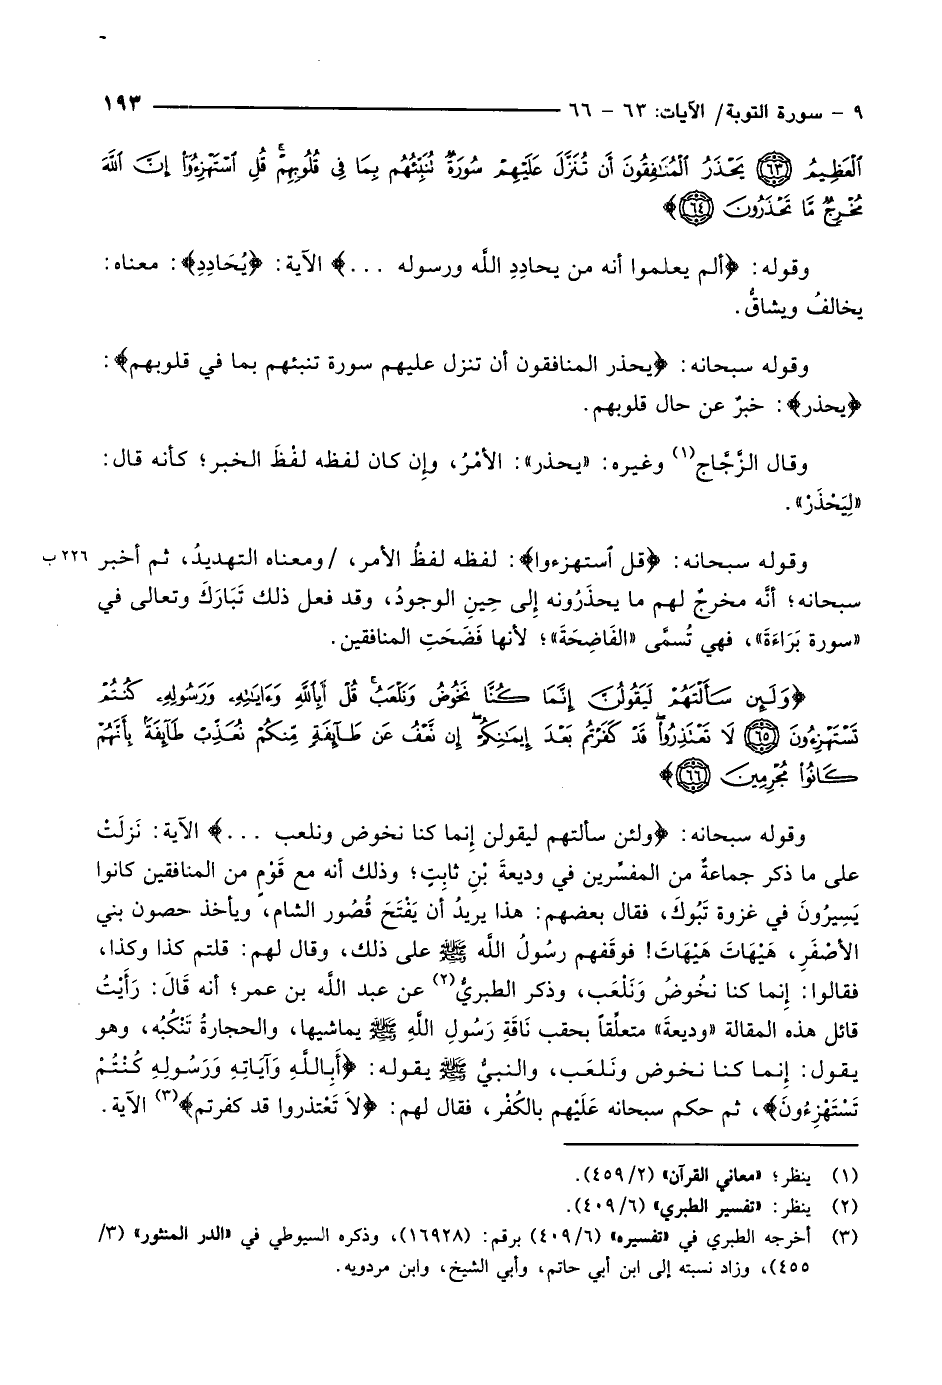 ٩ - سورة التوبة/ الآيات: ٦٣ - ٦٦ ١٩٣
ٱلْعَظِيمُ ﴿٦٣﴾ يَحْذَرُ ٱلْمُنَٰفِقُونَ أَن تُنَزَّلَ عَلَيْهِمْ سُورَةٌ تُنَبِّئُهُم بِمَا فِى قُلُوبِهِمْ ۚ قُلِ ٱسْتَهْزِءُوٓا۟ إِنَّ ٱللَّهَ
مُخْرِجٌ مَّا تَحْذَرُونَ ﴿٦٤﴾﴾
وقوله: ﴿ألم يعلموا أنه من يحادِدِ اللَّه ورسوله ...﴾ الآية: ﴿يُحَادِدِ﴾: معناه:
يخالفُ ويشاقُّ.
وقوله سبحانه: ﴿يحذر المنافقون أن تنزل عليهم سورة تنبئهم بما في قلوبهم﴾:
﴿يحذر﴾: خبرٌ عن حال قلوبهم.
وقال الزَّجَّاج(١) وغيره: «يحذر»: الأمْرُ، وإِن كان لفظه لفْظَ الخبر؛ كأنه قال:
«لِيَحْذَرْ».
وقوله سبحانه: ﴿قل ٱستهزءوا﴾: لفظه لفظُ الأمر، /ومعناه التهديدُ، ثم أخبر ٢٢٦ ب
سبحانه؛ أنَّه مخرجٌ لهم ما يحذَرُونه إِلى حِينِ الوجودُ، وقد فعل ذلك تَبَارَكَ وتعالى في
«سورة بَرَاءَةَ»، فهي تُسمَّى «الفَاضِحَةَ»؛ لأنها فَضَحَتِ المنافقين.
﴿وَلَئِن سَأَلْتَهُمْ لَيَقُولُنَّ إِنَّمَا كُنَّا نَخُوضُ وَنَلْعَبُ ۚ قُلْ أَبِٱللَّهِ وَءَايَٰتِهِۦ وَرَسُولِهِۦ كُنتُمْ
تَسْتَهْزِءُونَ ﴿٦٥﴾ لَا تَعْتَذِرُوا۟ ۖ قَدْ كَفَرْتُم بَعْدَ إِيمَٰنِكُمْ ۚ إِن نَّعْفُ عَن طَآئِفَةٍ مِّنكُمْ نُعَذِّبْ طَآئِفَةًۢ بِأَنَّهُمْ
كَانُوا۟ مُجْرِمِينَ ﴿٦٦﴾﴾
وقوله سبحانه: ﴿ولئن سألتهم ليقولن إِنما كنا نخوض ونلعب ...﴾ الآية: نَزلَتْ
على ما ذكر جماعةٌ من المفسِّرين في وديعةَ بْنِ ثابِتٍ؛ وذلك أنه مع قَوْمٍ من المنافقين كانوا
يَسِيرُونَ في غزوة تَبُوكَ، فقال بعضهم: هذا يريدُ أن يَفْتَحَ قُصُور الشام، ويأخذ حصون بني
الأصْفَرِ، هَيْهَاتَ هَيْهَاتَ! فوقَفهم رسُولُ اللَّه ﷺ على ذلك، وقال لهم: قلتم كذا وكذا،
فقالوا: إِنما كنا نخُوضُ وَنَلْعَب، وذكر الطبريُّ(٢) عن عبد اللَّه بن عمر؛ أنه قَالَ: رَأَيْتُ
قائل هذه المقالة «وديعةَ» متعلِّقاً بحقب نَاقَةِ رَسُولِ اللَّهِ ﷺ يماشيها، والحجارةُ تَنْكُبُه، وهو
يقول: إِنما كنا نخوض ونلعب، والنبيُّ ﷺ يقوله: ﴿أَبِاللَّهِ وَآيَاتِهِ وَرَسُولِهِ كُنْتُمْ
تَسْتَهْزِءُونَ﴾، ثم حكم سبحانه عَلَيْهم بالكُفْر، فقال لهم: ﴿لاَ تَعْتذروا قد كفرتم﴾(٣) الآية.
(١) ينظر؛ «معاني القرآن» (٤٥٩/٢).
(٢) ينظر: «تفسير الطبري» (٤٠٩/٦).
(٣) أخرجه الطبري في «تفسيره» (٤٠٩/٦) برقم: (١٦٩٢٨)، وذكره السيوطي في «الدر المنثور» (٣/
٤٥٥)، وزاد نسبته إلى ابن أبي حاتم، وأبي الشيخ، وابن مردويه.